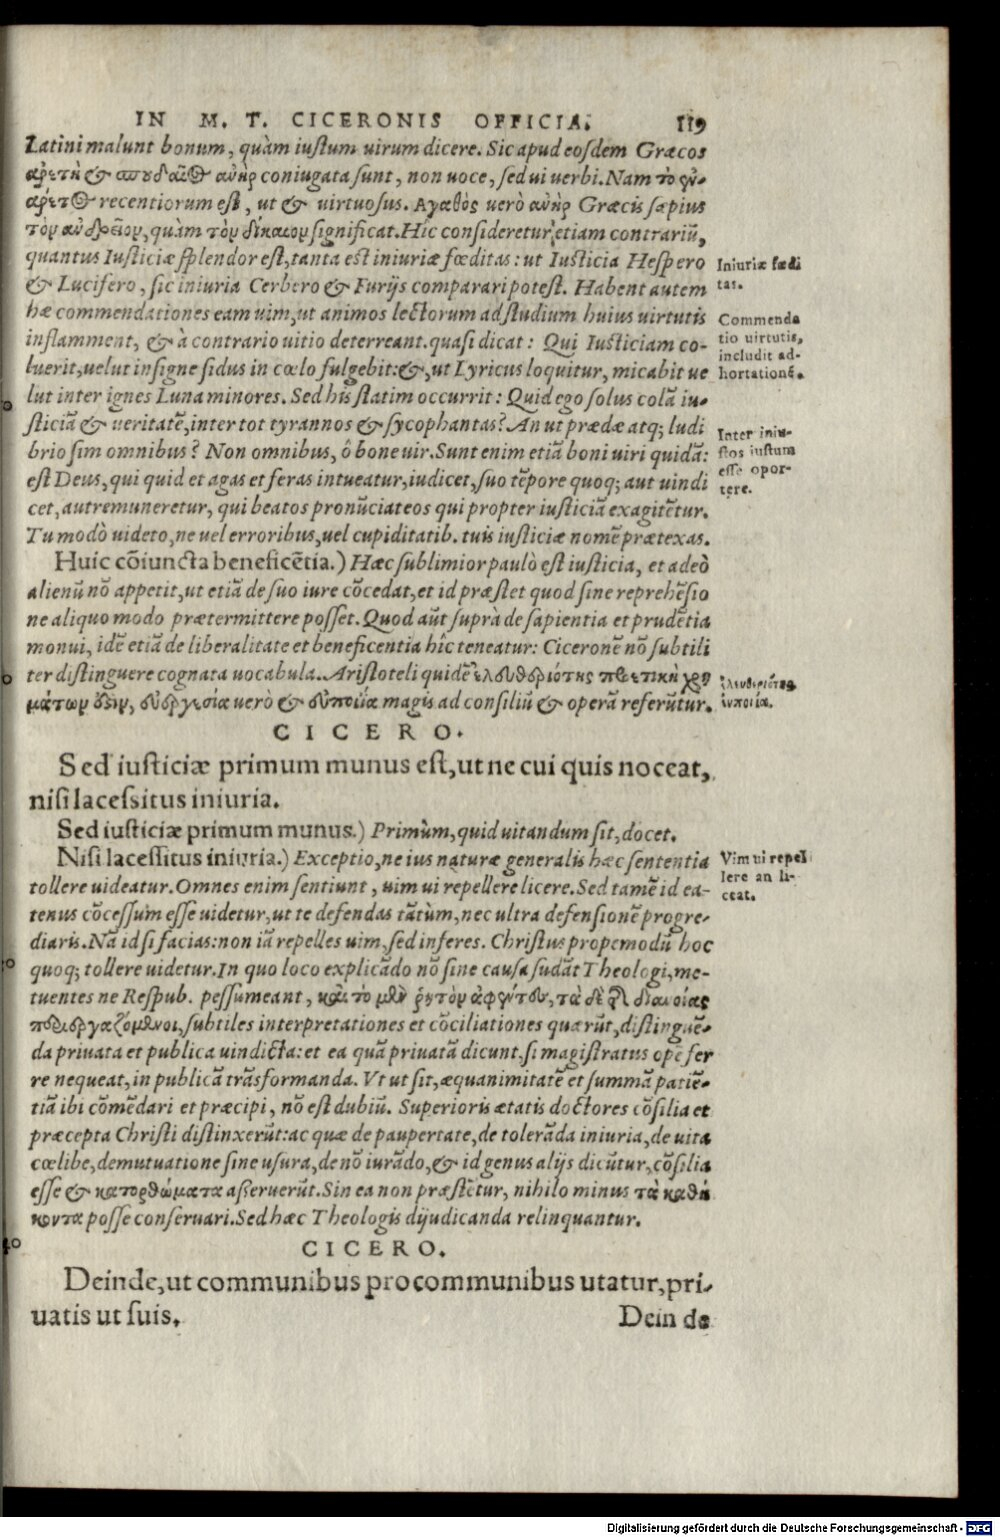 IN M. T. CICERONIS OFFICIA. 119
Latini malunt bonum, quàm iustum uirum dicere. Sic apud eosdem Græcos
ἀρετὴ & σπουδαῖος ἀνὴρ coniugata sunt, non uoce, sed ui uerbi. Nam τὸ
recentiorum est, ut & uirtuosus. Αγαθὸς uerò ἀνὴρ Græcis sæpius
τὸν ἀνδρεῖον, quàm τὸν δίκαιον significat. Hic consideretur etiam contrariũ,
quantus Iusticiæ splendor est, tanta est iniuriæ fœditas: ut Iusticia Hespero
& Lucifero, sic iniuria Cerbero & Furijs comparari potest. Habent autem
hæ commendationes eam uim, ut animos lectorum ad studium huius uirtutis
inflamment, & à contrario uitio deterreant. quasi dicat: Qui Iusticiam co-
luerit, uelut insigne sidus in cœlo fulgebit: &, ut Lyricus loquitur, micabit ue
lut inter ignes Luna minores. Sed his statim occurrit: Quid ego solus colã iu-
sticiã & ueritatẽ, inter tot tyrannos & sycophantas? An ut prædæ atq; ludi
brio sim omnibus? Non omnibus, ô bone uir. Sunt enim etiã boni uiri quidã:
est Deus, qui quid et agas et feras intueatur, iudicet, suo tẽpore quoq; aut uindi
cet, aut remuneretur, qui beatos pronũciat eos qui propter iusticiã exagitẽtur.
Tu modò uideto, ne uel erroribus, uel cupiditatib. tuis iusticiæ nomẽ prætexas.
Huic cõiuncta beneficẽtia.) Hæc sublimior paulò est iusticia, et adeò
alienũ nõ appetit, ut etiã de suo iure cõcedat, et id præstet quod sine reprehẽsio
ne aliquo modo prætermittere posset. Quod aũt suprà de sapientia et prudẽtia
monui, idẽ etiã de liberalitate et beneficentia hîc teneatur: Ciceronẽ nõ subtili
ter distinguere cognata uocabula. Aristoteli quidẽ ἐλευθεριότης περὶ τικὴ χρη
μάτων δεῖν, εὐεργεσία uerò & εὐποιΐα magis ad consiliũ & operã referũtur.
CICERO.
Sed iusticiæ primum munus est, ut ne cui quis noceat,
nisi lacessitus iniuria.
Sed iusticiæ primum munus.) Primùm, quid uitandum sit, docet.
Nisi lacessitus iniuria.) Exceptio, ne ius naturæ generalis hæc sententia
tollere uideatur. Omnes enim sentiunt, uim ui repellere licere. Sed tamẽ id ea-
tenus cõcessum esse uidetur, ut te defendas tãtùm, nec ultra defensionẽ progre-
diaris. Nã id si facias: non iã repelles uim, sed inferes. Christus propemodũ hoc
quoq; tollere uidetur. In quo loco explicãdo nõ sine causa sudãt Theologi, me-
tuentes ne Respub. pessumeant, καὶ τὸ μὲν ῥητὸν ἀφέντες, τὰ δὲ διανοίας
περιεργαζόμενοι, subtiles interpretationes et cõciliationes quærũt, distinguẽ-
da priuata et publica uindicta: et ea quã priuatã dicunt, si magistratus opẽ fer
re nequeat, in publicã trãsformanda. Vt ut sit, æquanimitatẽ et summã patiẽ-
tiã ibi cõmẽdari et præcipi, nõ est dubiũ. Superioris ætatis doctores cõsilia et
præcepta Christi distinxerũt: ac quæ de paupertate, de tolerãda iniuria, de uita
cœlibe, de mutuatione sine usura, de nõ iurãdo, & id genus alijs dicũtur, cõsilia
esse & κατορθώματα asseruerũt. Sin ea non præstẽtur, nihilo minus τὰ καθή
κοντα posse conseruari. Sed hæc Theologis dijudicanda relinquantur.
CICERO.
Deinde, ut communibus pro communibus utatur, pri-
uatis ut suis.
Dein de
Iniuriæ fœdi
tas.
Commenda
tio uirtutis,
includit ad-
hortationẽ.
Inter iniu-
stos iustum
esse opor-
tere.
ἐλευθεριότης
εὐποιΐα.
Vim ui repel
lere an li-
ceat.
Digitalisierung gefördert durch die Deutsche Forschungsgemeinschaft - DFG